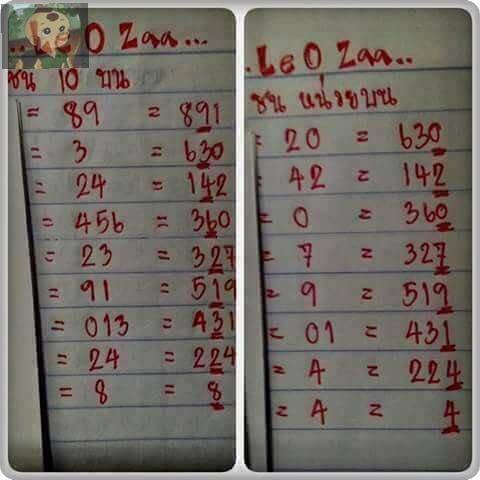 ..Le O Zaa...
ชน 10 บน
= 89 = 891
= 3 = 630
= 24 = 142
= 456 = 360
= 23 = 327
= 91 = 519
= 013 = 431
= 24 = 224
= 8 = 8
.Le O Zaa..
ชน หน่วยบน
= 20 = 630
= 42 = 142
= 0 = 360
= 7 = 327
= 9 = 519
= 01 = 431
= 4 = 224
= 4 = 4